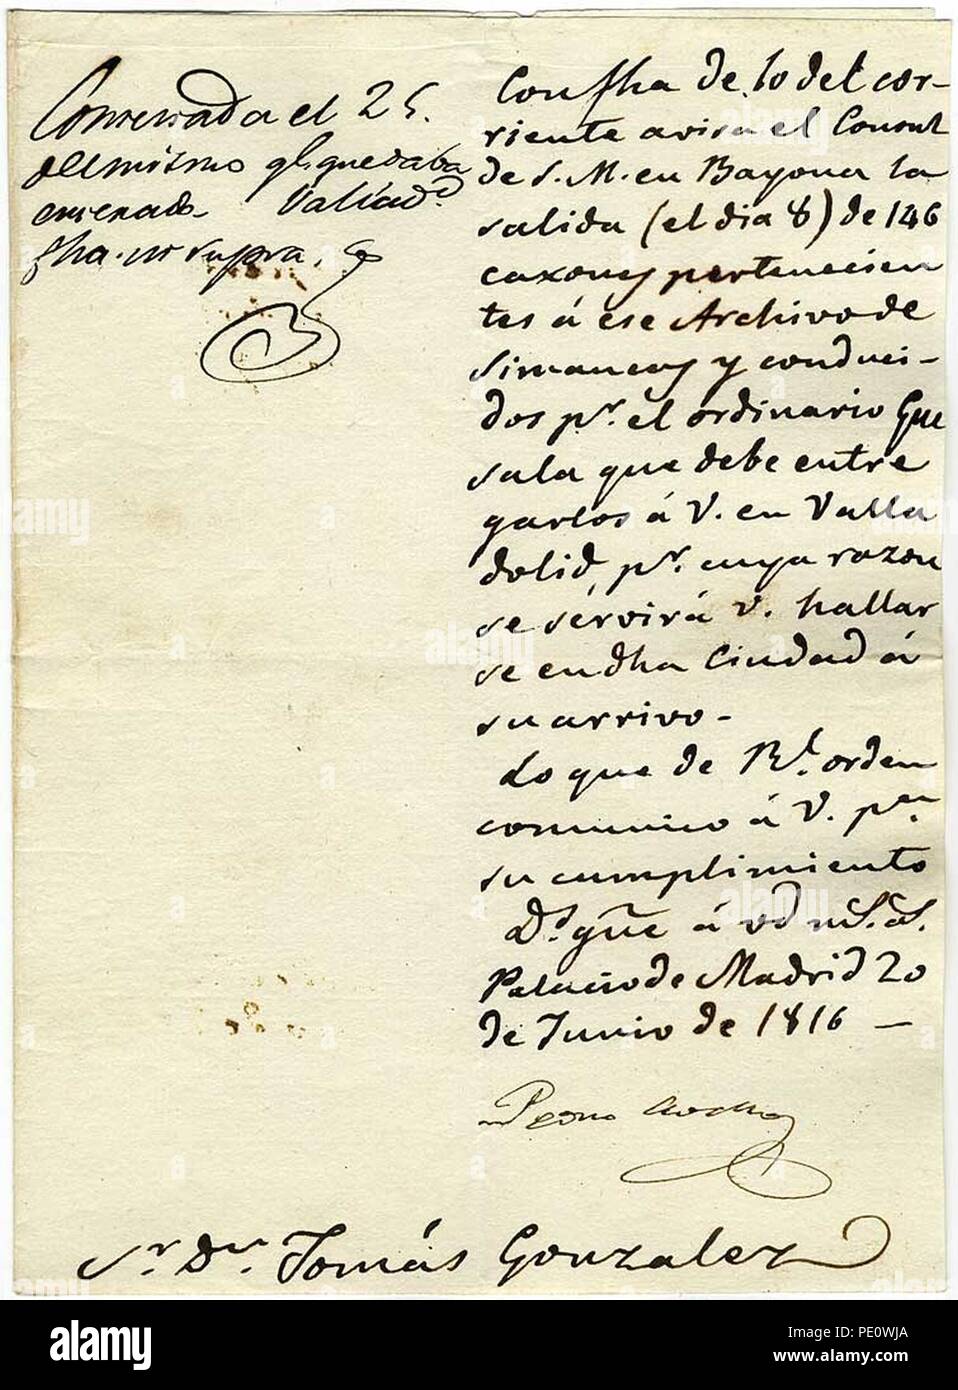 Contestada el 25.
del mismo qe. quedaba
enterado. Valladd.
fha. ut supra.
Con fha de 10 del cor-
riente avisa el Consul
de S. M. en Bayona la
salida (el dia 8) de 146
caxones pertenecien
tes á ese Archivo de
Simancas y conduci-
dos pr. el ordinario Gue
sala que debe entre
garlos á V. en Valla
dolid, pr. cuya razon
se servirá V. hallar
se en dha Ciudad á
su arrivo-
Lo que de Rl. orden
comunico á V. pa.
su cumplimiento
Ds. gũe á vd ms. as.
Palacio de Madrid 20
de Junio de 1816 —
Pedro
Sr. Dn. Tomás Gonzalez
alamy
Image ID: PE0WJA
www.alamy.com